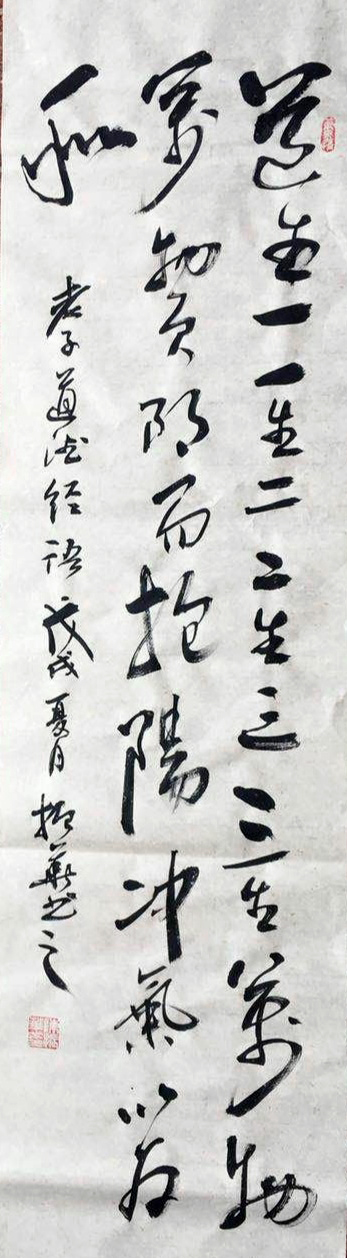 道生一一生二二生三三生萬物
萬物負陰而抱陽冲氣以為
和
老子道德经语戊戌夏月振華书之